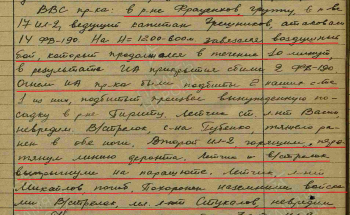 ВВС пр-ка: в р-не Фрауенков группу, в к-ве
17 Ил-2, ведущий капитан атаковали
14 ФВ-190. На Н=1200-800м завязался воздушный
бой, который продолжался в течение 10 минут
в результате ИА прикрытия сбили 2 ФВ-190
Огнем ИА пр-ка были подбиты 2 наших с-та
1 из них, подбитый, произвел вынужденную по-
садку в р-не Летчик ст. л-нт
невредим В/стрелок, с-на Губенко тяжело ра-
нен в обе ноги. Второй Ил-2 горящим, пере-
тянул линию фронта. Летчик и в/стрелок
выпрыгнули на парашюте. Летчик, л-нт
Михайлов погиб. Похоронен наземными войска-
ми. В/стрелок, мл. с-нт Стукалов невредим